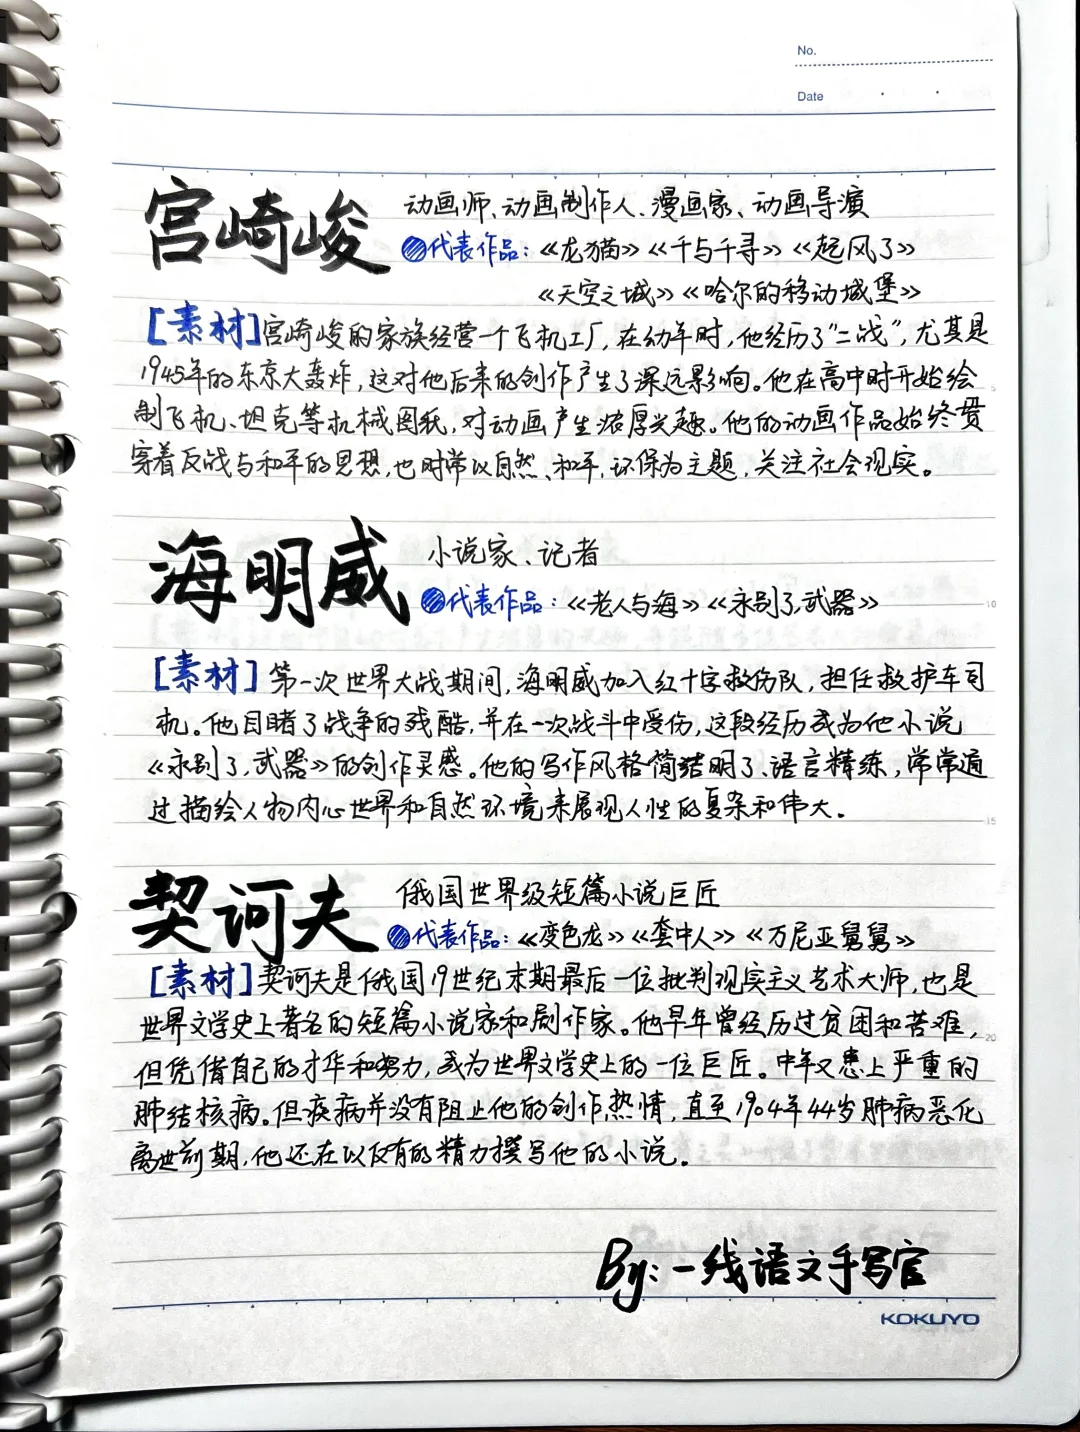 No.
Date
宫崎峻
动画师、动画制作人、漫画家、动画导演
代表作品:《龙猫》《千与千寻》《起风了》
《天空之城》《哈尔的移动城堡》
[素材]宫崎峻的家族经营一个飞机工厂,在幼年时,他经历了“二战”,尤其是
1945年的东京大轰炸,这对他后来的创作产生了深远影响。他在高中时开始绘
制飞机、坦克等机械图纸,对动画产生浓厚兴趣。他的动画作品始终贯
穿着反战与和平的思想,也时常以自然、和平,环保为主题,关注社会现实。
海明威
小说家、记者
代表作品:《老人与海》《永别了,武器》
[素材]第一次世界大战期间,海明威加入红十字救伤队,担任救护车司
机。他目睹了战争的残酷,并在一次战斗中受伤,这段经历成为他小说
《永别了,武器》的创作灵感。他的写作风格简洁明了、语言精练,常常通
过描绘人物内心世界和自然环境来展现人性的复杂和伟大。
契诃夫
俄国世界级短篇小说巨匠
代表作品:《变色龙》《套中人》《万尼亚舅舅》
[素材]契诃夫是俄国19世纪末期最后一位批判现实主义艺术大师,也是
世界文学史上著名的短篇小说家和剧作家。他早年曾经历过贫困和苦难,
但凭借自己的才华和努力,成为世界文学史上的一位巨匠。中年又患上严重的
肺结核病。但疾病并没有阻止他的创作热情,直至1904年44岁肺病恶化
离世前期,他还在以仅有的精力撰写他的小说。
By:一线语文手写官
KOKUYO